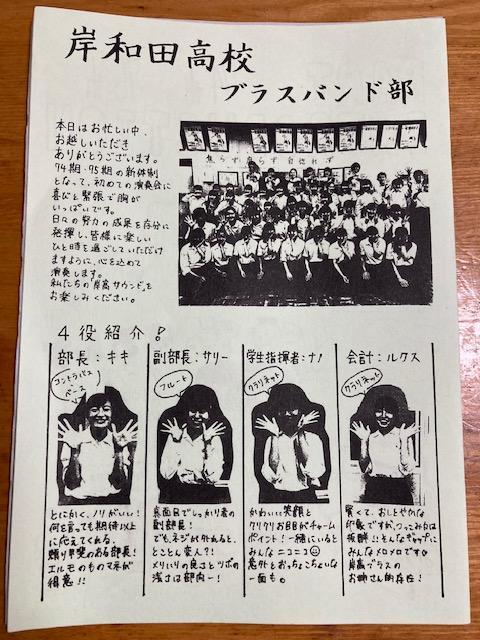 岸和田高校
ブラスバンド部
本日はお忙しい中、
お越しいただき
ありがとうございます。
74期・75期の新体制
となって、初めての演奏会に
喜びと緊張で胸が
いっぱいです。
日々の努力の成果を存分に
発揮し、皆様に楽しい
ひと時を過ごしていただけ
ますように、心を込めて
演奏します。
私たちの"岸高サウンド"を
お楽しみください。
焦らず 怠らず 自惚れず
4役紹介!
部長:キキ
コントラバス
ベース
とにかく、ノリがいい!
何を言っても期待以上
に応えてくれる、
頼り甲斐のある部長!
エルモのものマネが
得意!!
副部長:サリー
フルート
真面目でしっかり者の
副部長!
でもネジが外れると、
とことん変人?!
メリハリの良さとツボの
浅さは部内一!
学生指揮者:ナノ
クラリネット
かわいい笑顔と
クリクリお目目がチャーム
ポイント!一緒にいると
みんなニコニコ
意外とおっちょこちょいな
一面も。
会計:ルクス
クラリネット
賢くて、おしとやかな
印象ですが、つっこみ力は
抜群!!そんなギャップに
みんなメロメロです
岸高ブラスの
お姉さん的存在!